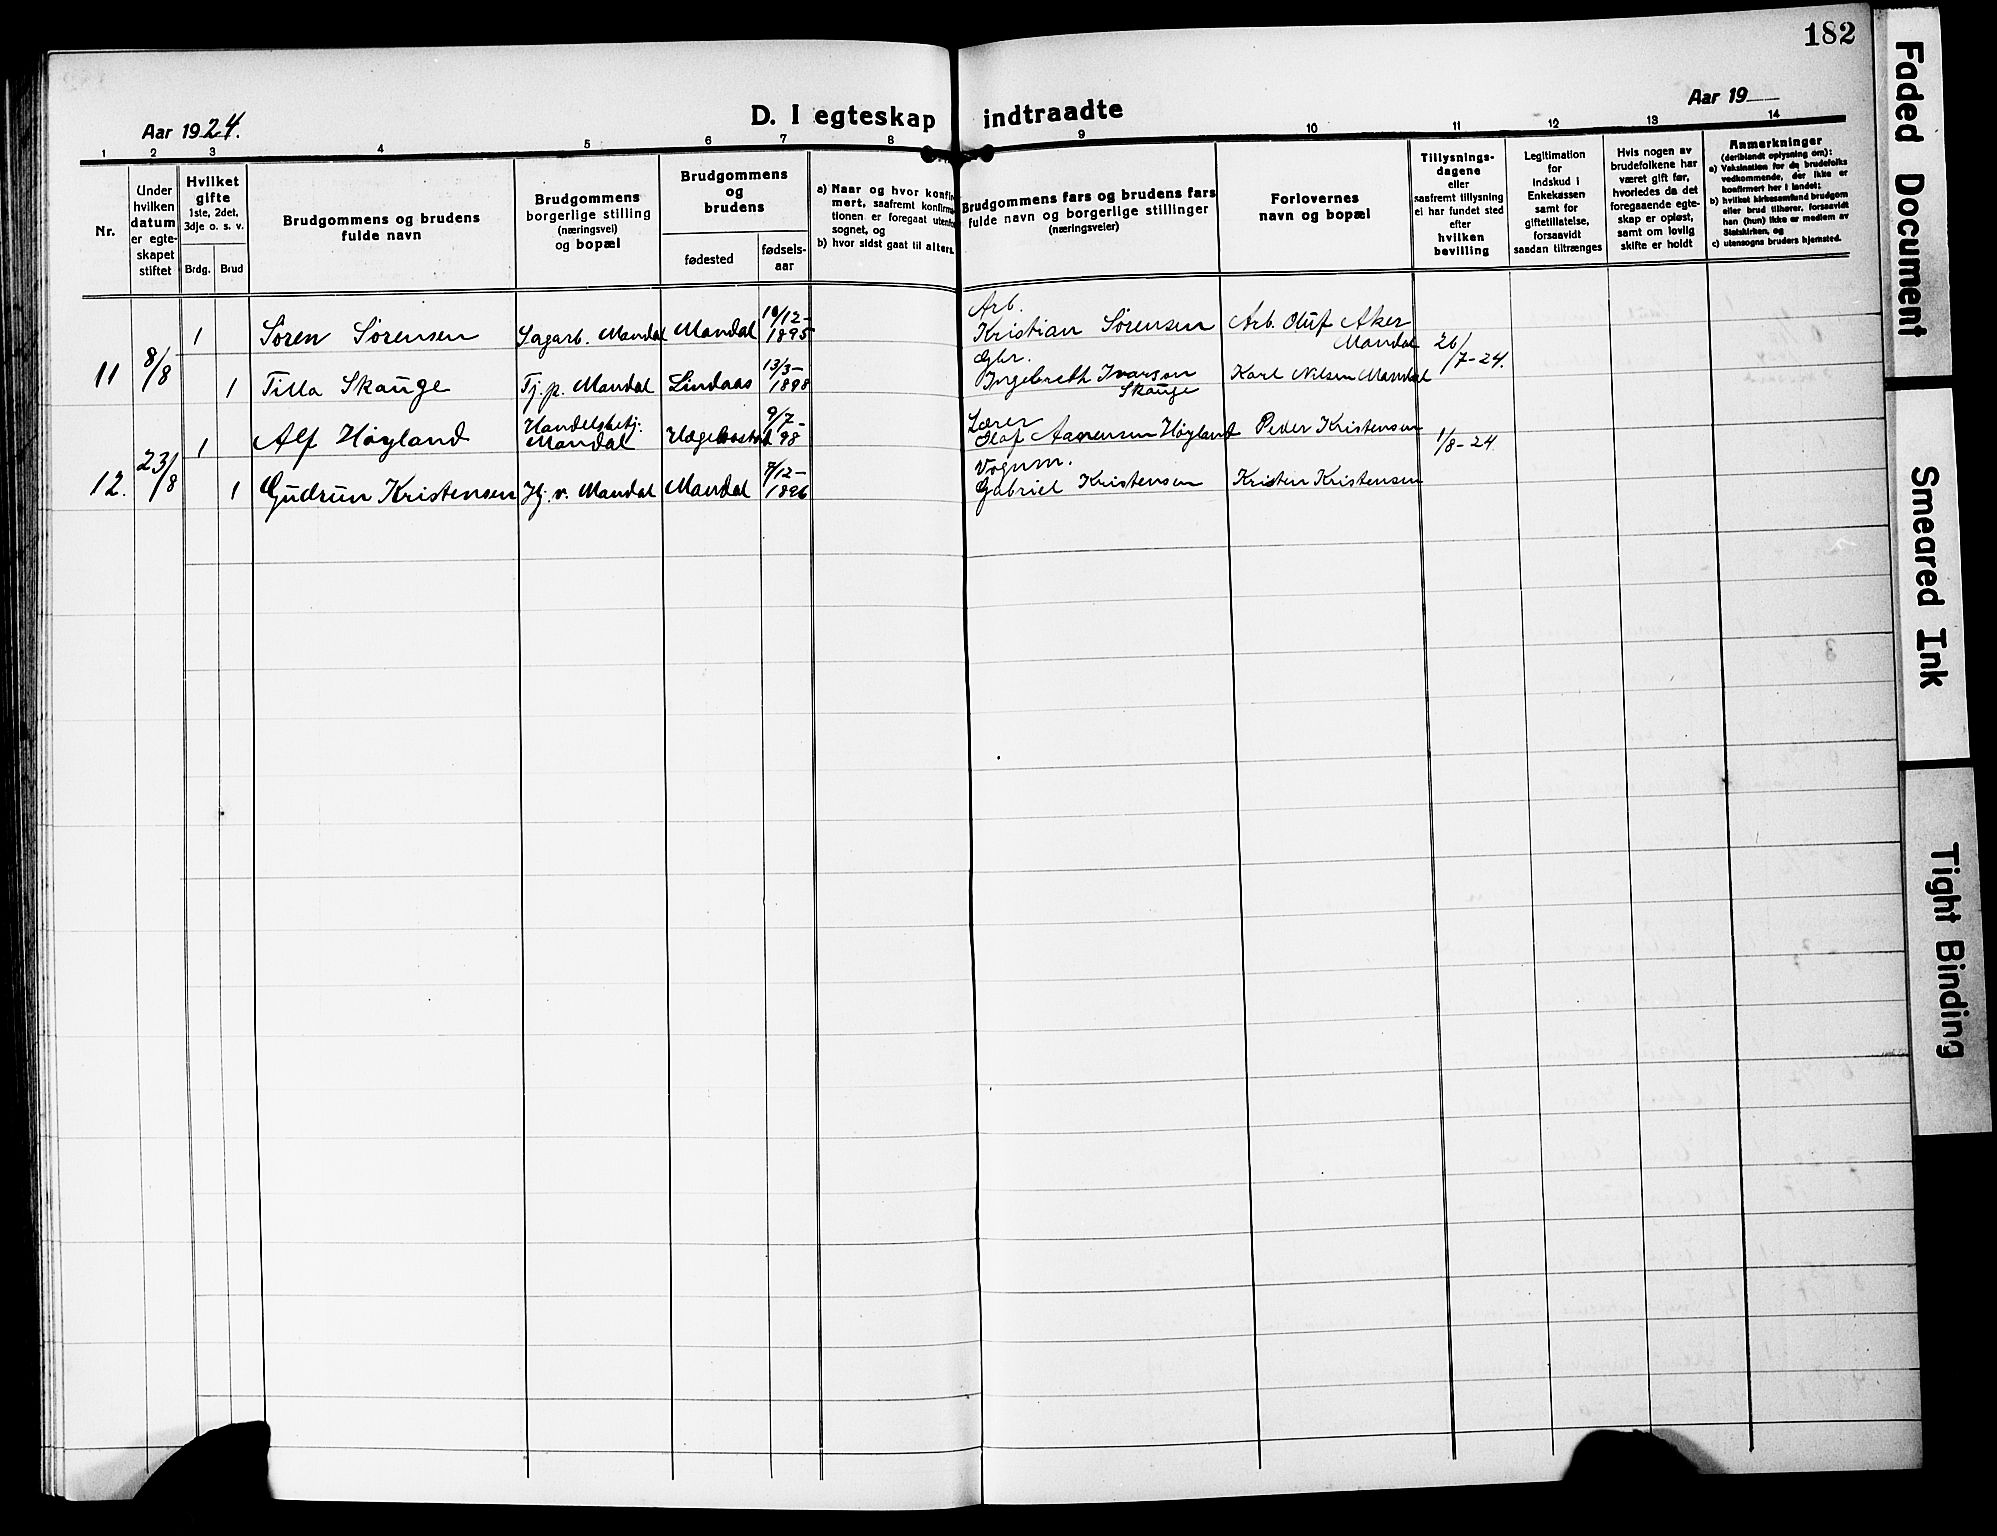 182
Aar 1924.
D. I egteskap indtraadte
Aar 19
1 2 3 4 5 6 7 8 9 10 11 12 13 14
Nr.
Under hvilken datum er egte-skapet stiftet
Hvilket gifte
1ste, 2det, 3dje o. s. v.
Brdg. Brud
Brudgommens og brudens fulde navn
Brudgommens borgerlige stilling (næringsvei) og bopæl
Brudgommens og brudens
fødested
fødsels-aar
a) Naar og hvor konfir
mert, saafremt konfirma
tionen er foregaat utenfo
sognet, og
b) hvor sidst gaat til alters.
Brudgommens fars og brudens fars
fulde navn og borgerlige stillinger
(næringsveier)
Forlovernes
navn og bopæl
Tillysnings-
dagene
eller
saafremt tillysning
ei har fundet sted
efter
hvilken
bevilling
Legitimation
for
Indskud i
Enkekassen
samt for
giftetillatelse,
forsaavidt
saadan tiltrænges
Hvis nogen av
brudefolkene har
været gift før,
hvorledes da det
foregaaende egte-
skap er opløst,
samt om lovlig
skifte er holdt
Anmerkninger
(deriblandt oplysning om):
a) Vaksination for de brudefolks
vedkommende, der ikke er
konfirmert her i landet;
b) hvilket kirkesamfund brudgom
eller brud tilhører, forsaavidt
han (hun) ikke er medlem av
Statskirken, og
c) utensogns bruders hjemsted.
11 8/8
1 Søren Sørensen Sagarb. Mandal Mandal 16/12-1895 Arb. Kristian Sørensen Arb. Oluf Aker Mandal 26/7-24.
1 Tilla Skauge Tj. p. Mandal Lindaas 13/3-1898 Gbr. Ingebreth Ivarsen Skauge Karl Nilsen Mandal
12. 23/8
1 Alf Høyland Handelsbetj. Mandal Hægebostad 9/7-98 Lærer Olaf Aanensen Høyland Peder Kristensen 1/8-24
1 Gudrun Kristensen Hj. v. Mandal Mandal 7/12-1896 Vognm. Gabriel Kristensen Kristen Kristensen
Faded Document
Smeared Ink
Tight Binding